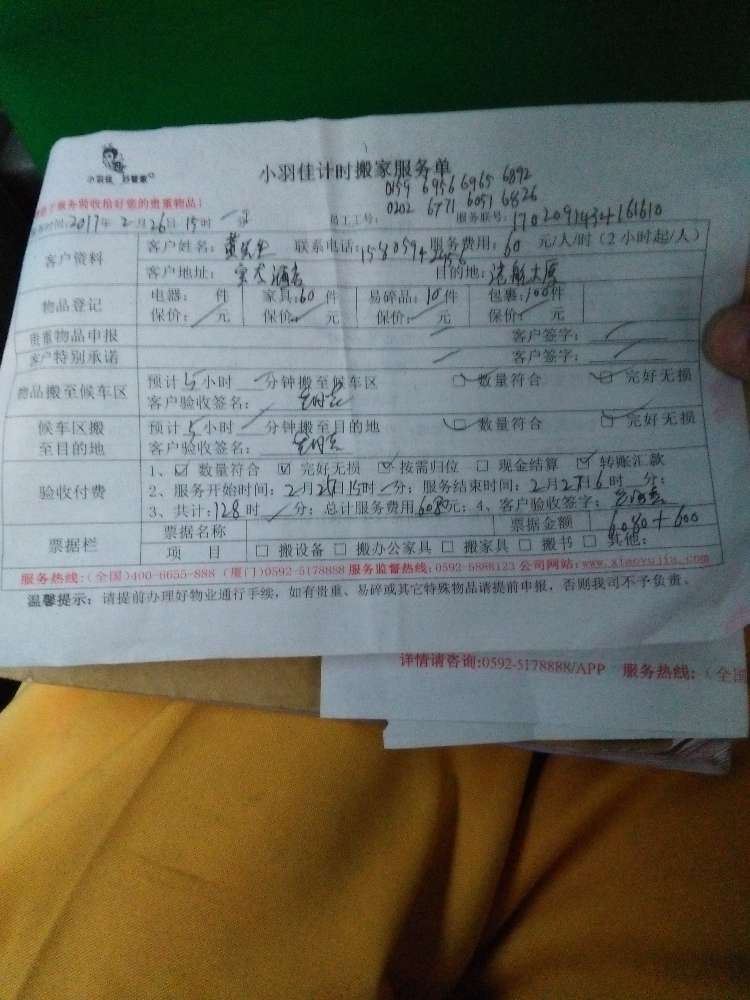 小羽佳 妙管家
小羽佳计时搬家服务单
服务验收检好您的贵重物品!
0159 6956 6965 6892
0202 6771 6051 6826
时间:2017年2月26日15时 分 员工工号: 服务联号:1702091434161610
客户资料
客户姓名: 联系电话: 服务费用:60元/人/时(2小时起/人)
客户地址: 酒店 目的地:港航大厦
物品登记
电器: 件 家具:60件 易碎品:10件 包裹:100件
保价: 元 保价: 元 保价: 元 保价: 元
贵重物品申报 客户签字:
客户特别承诺 客户签字:
物品搬至候车区
预计5小时 分钟搬至候车区 □数量符合 □完好无损
客户验收签名:
候车区搬至目的地
预计5小时 分钟搬至目的地 □数量符合 □完好无损
客户验收签名:
验收付费
1、☑数量符合 ☑完好无损 ☑按需归位 □现金结算 ☑转账汇款
2、服务开始时间:2月 日15时 分;服务结束时间:2月27日16时 分;
3、共计:128时 分;总计服务费用6080元;4、客户验收签字:
6080+600
票据栏
票据名称 票据金额
项目 □搬设备 □搬办公家具 □搬家具 □搬书 □其他:
服务热线:(全国)400-6655-888 (厦门)0592-5178888 服务监督热线:0592-5888123 公司网站:www.xiaoyujia.com
温馨提示:请提前办理好物业通行手续,如有贵重、易碎或其它特殊物品请提前申报,否则我司不予负责。
详情请咨询:0592-5178888/APP 服务热线:(全国